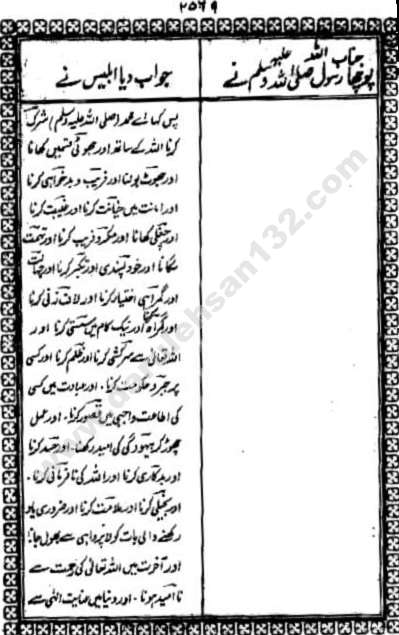 ۲۵۶۹
جناب اللہ علیہ
پوچھا رسول صلی اللہ وسلم نے
جواب دیا ابلیس نے
پس کہا اے محمد (صلی اللہ علیہ وسلم) شرک
کرنا اللہ کے ساتھ اور جھوٹی قسمیں کھانا
اور جھوٹ بولنا اور فریب و بدخواہی کرنا
اور امانت میں خیانت کرنا اور غیبت کرنا
اور چغلی کھانا اور مکر و فریب کرنا اور تہمت
لگانا اور خود پسندی اور تکبر کرنا اور
اور گمراہی اختیار کرنا اور لاف زنی کرنا
اور گمراہ کرنا اور نیک کام میں سستی کرنا اور
اللہ تعالیٰ سے سرکشی کرنا اور ظلم کرنا اور کسی
پر جبر و حکومت کرنا۔ اور عبادت میں کسی
کی اطاعت واجبی میں قصور کرنا۔ اور عمل
چھوڑ کر بیہودگی کی امید رکھنا۔ اور حسد کرنا
اور بدکاری کرنا اور اللہ کی نافرمانی کرنا۔
اور بخیلی کرنا اور ملامت کرنا اور ضروری یاد
رکھنے والی بات کو لاپرواہی سے بھول جانا
اور آخرت میں اللہ تعالیٰ کی رحمت سے
نا امید ہونا۔ اور دنیا میں عنایت الٰہی سے
www.darulehsan132.com